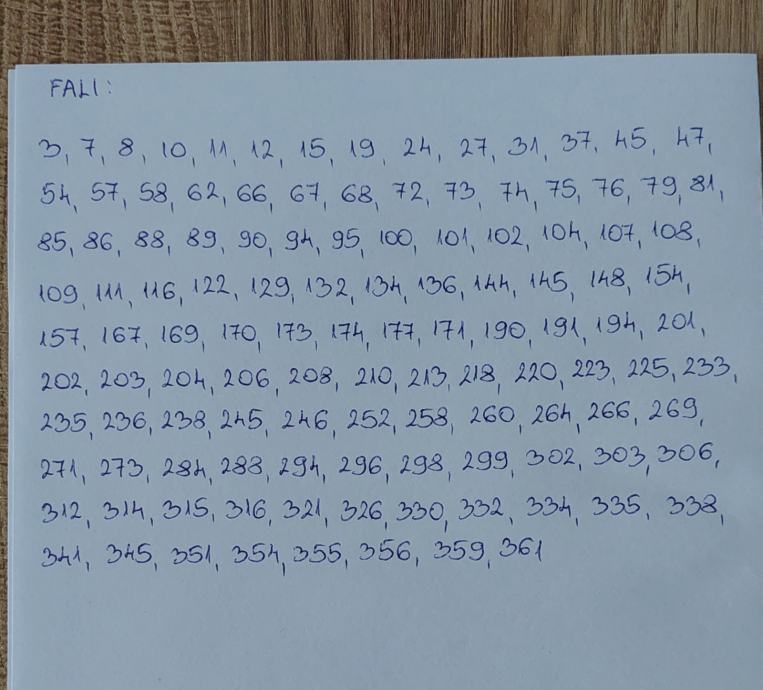 FALI:
3, 7, 8, 10, 11, 12, 15, 19, 24, 27, 31, 37, 45, 47,
54, 57, 58, 62, 66, 67, 68, 72, 73, 74, 75, 76, 79, 81,
85, 86, 88, 89, 90, 94, 95, 100, 101, 102, 104, 107, 108,
109, 111, 116, 122, 129, 132, 134, 136, 144, 145, 148, 154,
157, 167, 169, 170, 173, 174, 177, 171, 190, 191, 194, 201,
202, 203, 204, 206, 208, 210, 213, 218, 220, 223, 225, 233,
235, 236, 238, 245, 246, 252, 258, 260, 264, 266, 269,
271, 273, 284, 288, 294, 296, 298, 299, 302, 303, 306,
312, 314, 315, 316, 321, 326, 330, 332, 334, 335, 338,
341, 345, 351, 354, 355, 356, 359, 361